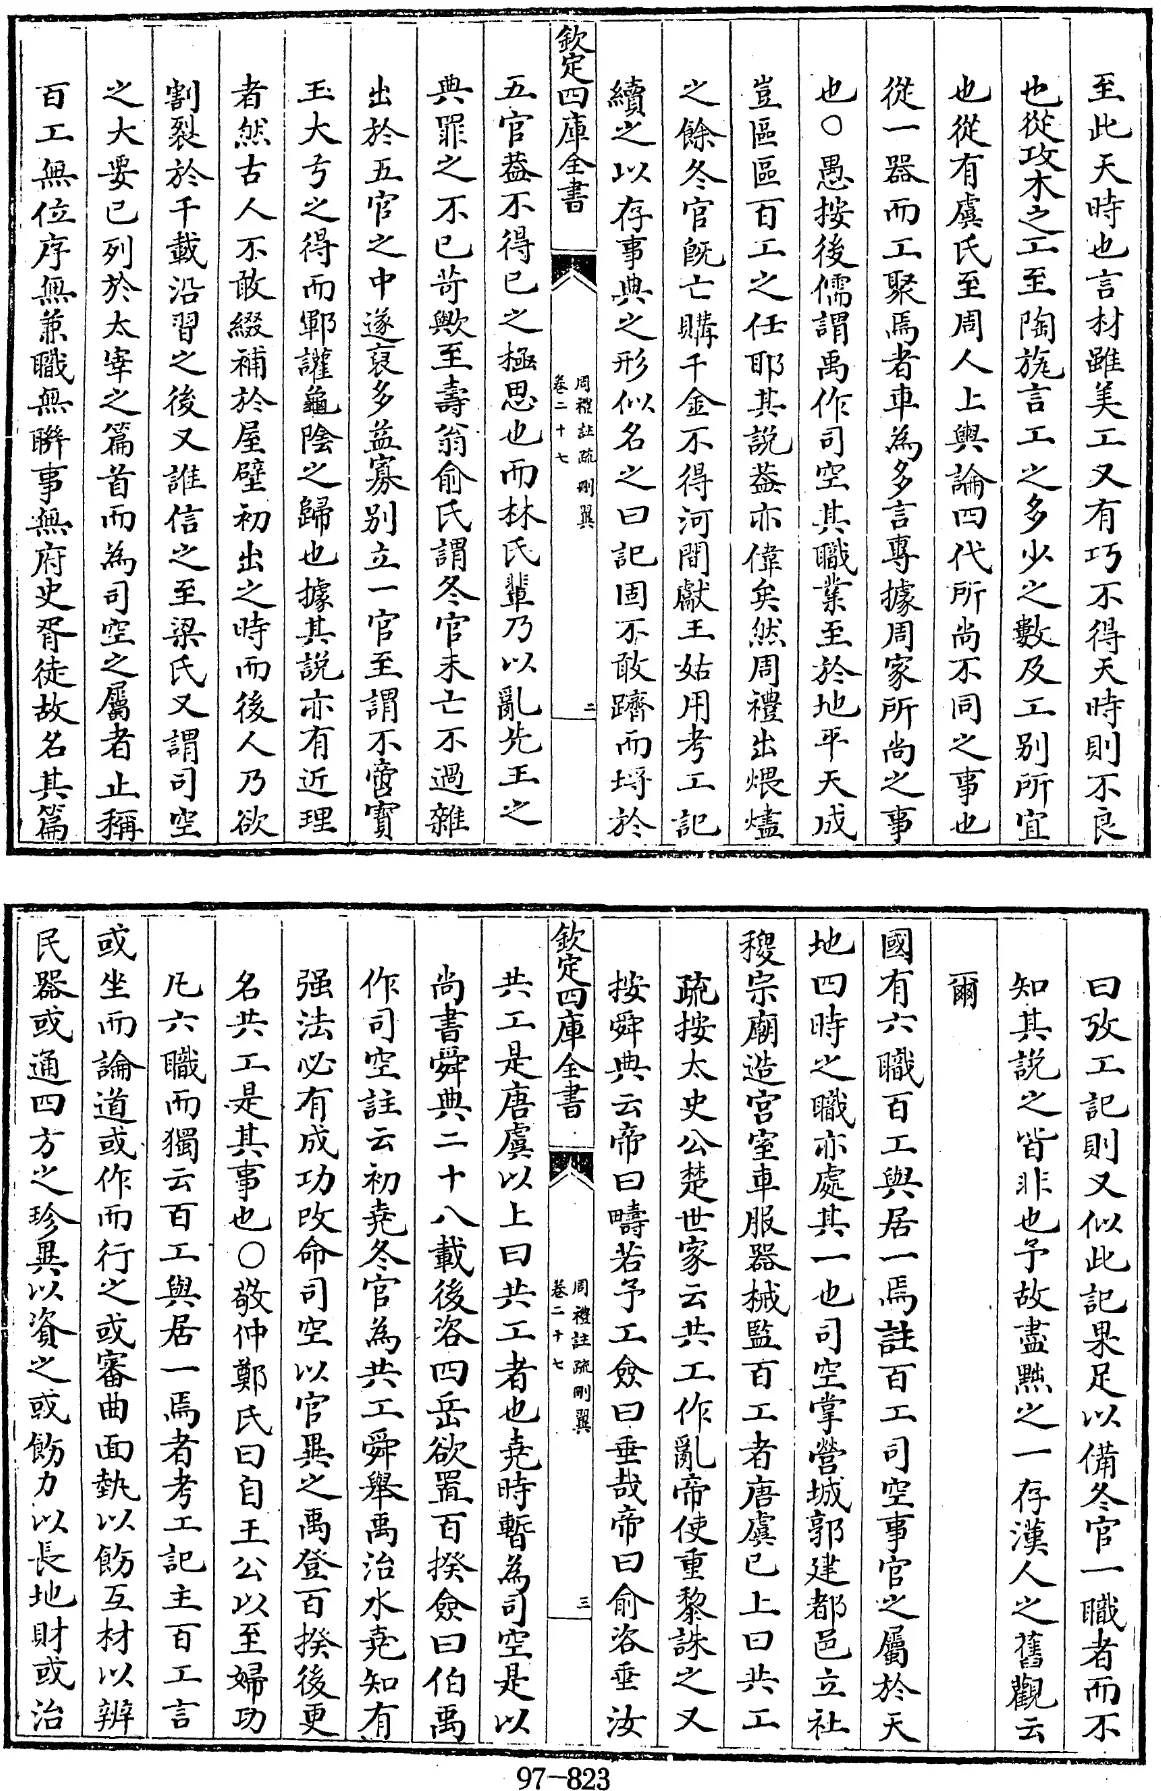 至此天時也言材雖美工又有巧不得天時則不良
也從攻木之工至陶旊言工之多少之數及工别所宜
也從有虞氏至周人上輿論四代所尚不同之事也
從一器而工聚焉者車為多言專據周家所尚之事
也○愚按後儒謂禹作司空其職業至於地平天成
豈區區百工之任耶其說葢亦偉矣然周禮出煨燼
之餘冬官旣亡購千金不得河間獻王姑用考工記
續之以存事典之形似名之曰記固不敢躋而埒於
欽定四庫全書
周禮註疏刪翼
卷二十七
二
五官葢不得已之極思也而林氏輩乃以亂先王之
典罪之不已苛歟至壽翁俞氏謂冬官未亡不過雜
出於五官之中遂裒多益寡别立一官至謂不啻寳
玉大弓之得而鄆讙龜陰之歸也據其說亦有近理
者然古人不敢綴補於屋壁初出之時而後人乃欲
割裂於千載沿習之後又誰信之至梁氏又謂司空
之大要已列於太宰之篇首而為司空之屬者止稱
百工無位序無兼職無聯事無府史胥徒故名其篇
曰攷工記則又似此記果足以備冬官一職者而不
知其說之皆非也予故盡黜之一存漢人之舊觀云
爾
國有六職百工與居一焉註百工司空事官之屬於天
地四時之職亦處其一也司空掌營城郭建都邑立社
稷宗廟造宫室車服器械監百工者唐虞已上曰共工
疏按太史公楚世家云共工作亂帝使重黎誅之又
按舜典云帝曰疇若予工僉曰垂哉帝曰俞咨垂汝
欽定四庫全書
周禮註疏刪翼
卷二十七
三
共工是唐虞以上曰共工者也堯時暫為司空是以
尚書舜典二十八載後咨四岳欲置百揆僉曰伯禹
作司空註云初堯冬官為共工舜舉禹治水堯知有
强法必有成功改命司空以官異之禹登百揆後更
名共工是其事也○敬仲鄭氏曰自王公以至婦功
凡六職而獨云百工與居一焉者考工記主百工言
或坐而論道或作而行之或審曲面埶以飭互材以辨
民器或通四方之珍異以資之或飭力以長地財或治
97-823